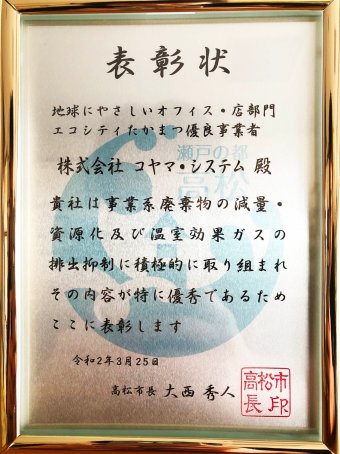 表彰状
地球にやさしいオフィス・店部門
エコシティたかまつ優良事業者
株式会社 コヤマ・システム 殿
瀬戸の都
高松
貴社は事業系廃棄物の減量・
資源化及び温室効果ガスの
排出抑制に積極的に取り組まれ
その内容が特に優秀であるため
ここに表彰します
令和2年3月25日
高松市長 大西 秀人
高松市
長印